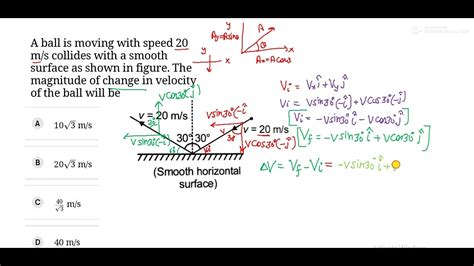 A ball is moving with speed 20
m/s collides with a smooth
surface as shown in figure. The
magnitude of change in velocity
of the ball will be
A 10√3 m/s
B 20√3 m/s
C 40/√3 m/s
D 40 m/s
y
Ay=Asinθ
A
θ
x
Ax=Acosθ
y
x
vcos30°(j)
v = 20 m/s
vsin30°(-i)
30° 30°
vsin30°(-i)
v = 20 m/s
vcos30°(-j)
(Smooth horizontal
surface)
Vi = Vxî + Vyĵ
Vi = vsin30°(-î) + vcos30°(-ĵ)
Vi = -vsin30°î - vcos30°ĵ
Vf = -vsin30°î + vcos30°ĵ
ΔV = Vf - Vi = -vsin30°î +